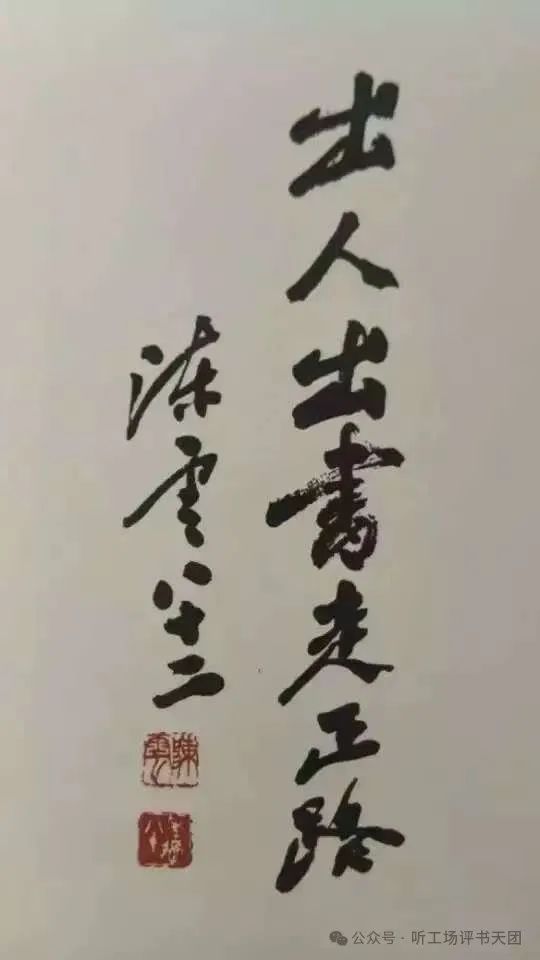 出人出書走正路
陈雲八十二
公众号·听工场评书天团